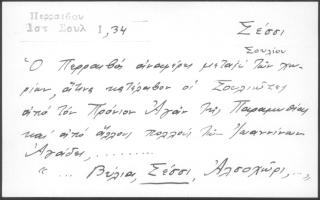 Περραιβου
Ιστ Σουλ Ι, 34
Σέσσι
Σουλίου
Ὁ Περραιβός ἀναφέρει μεταξύ τῶν χω-
ρίων, ἅτινα κατέλαβον οἱ Σουλιῶτες
ἀπό τόν Πρόνιον Ἀγᾶν τῆς Παραμυθίας
καί ἀπό ἄλλους πολλούς τῶν Ἰωαννίνων
Ἀγάδες, .........
"... Βίλια, Σέσσι, Ἀλσοχῶρι, ..."